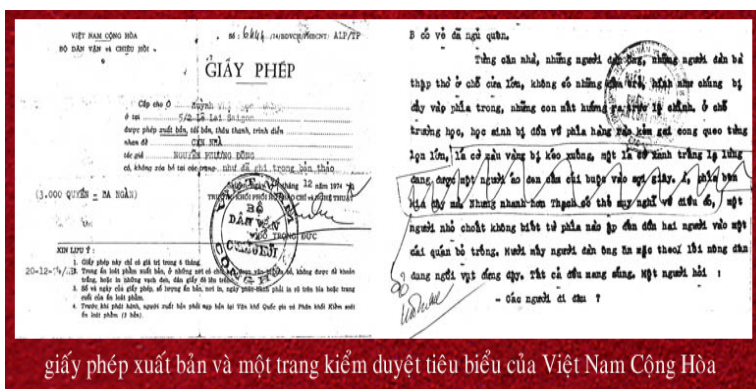 VIỆT NAM CỘNG HÒA
BỘ DÂN VẬN và CHIÊU HỒI
Số : 6444 /74/BDVCH/ ALP/TP
GIẤY PHÉP
Cấp cho Ô
ở tại 5/2 Lê Lai Saigon
được phép xuất bản, tái bản, thâu thanh, trình diễn
nhan đề CĂN NHÀ
tác giả NGUYỄN PHƯƠNG ĐÔNG
có, không xóa bỏ tại các trang như đã ghi trong bản thảo
(3.000 QUYỂN - BA NGÀN)
tháng 12 năm 1974
BỘ
DÂN VẬN
CHIÊU HỒI
TRỌNG ĐỨC
XIN LƯU Ý :
1. Giấy phép này chỉ có giá trị trong 6 tháng.
20-12-74
2. Trong ấn loát phẩm xuất bản, ở những nơi có không được để khoản
trắng, hoặc in những vạch đen, dán giấy đè lên
3. Số và ngày của giấy phép, số lượng ấn bản, nơi in, ngày phát hành phải in rõ trên bìa hoặc trang
cuối của ấn loát phẩm.
4. Trước khi phát hành, người xuất bản phải nạp bản tại Văn khố Quốc gia và Phân khối Kiểm soát
ấn loát phẩm (3 bản).
B cố vẻ đã ngủ quên.
Từng căn nhà, những người đàn ông, những người đàn bà
thập thò ở chỗ cửa lớn, không có những hình như chúng bị
cây vào phía trong, những con mắt hướng ra trục lộ chính. ở chỗ
trường học, học sinh bị dồn về phía hàng rào kẽm gai cong queo từng
lọn lớn, lá cờ màu vàng bị kéo xuống, một lá cờ xanh trắng lạ lùng
đang được một người áo đen cắm cúi buộc vào sợi giây. phía bên
kia Nhưng nhanh hơn Thạch có thể suy nghĩ về điều đó, một
người nhỏ choắt không biết từ phía nào ập đến đón hai người vào một
cái quán bỏ trống. Mười mấy người đàn ông ăn mặc theo lối nông dân
đang ngồi vụt đứng dậy. Tất cả đều mang súng. Một người hỏi :
- Các người đi đâu ?
giấy phép xuất bản và một trang kiểm duyệt tiêu biểu của Việt Nam Cộng Hòa